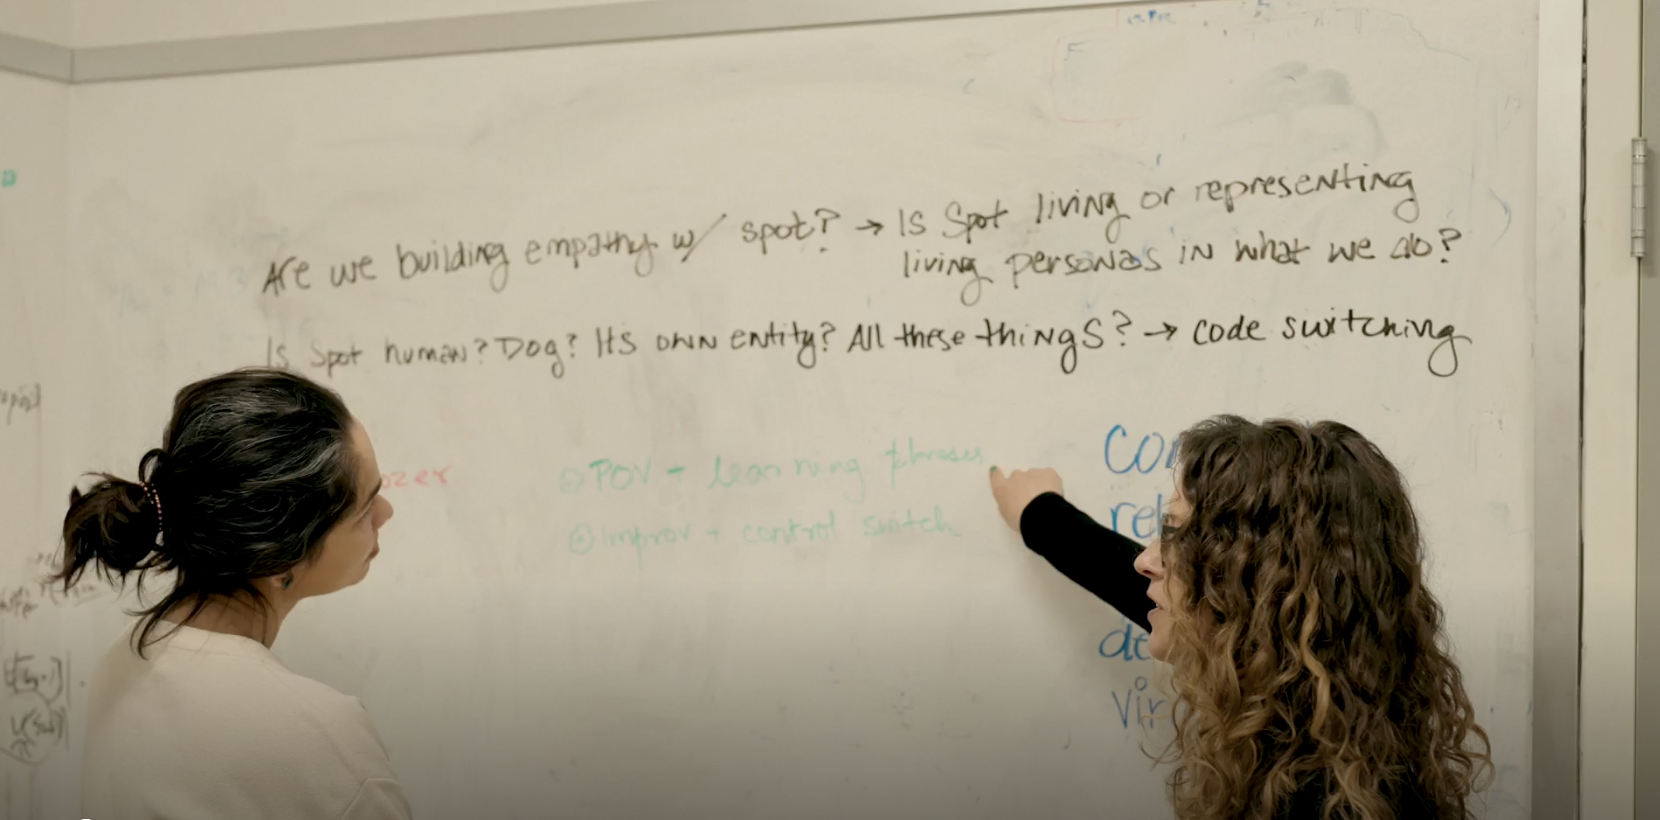 Are we building empathy w/ spot? → Is Spot living or representing
living personas in what we do?
Is Spot human? Dog? Its own entity? All these things? → code switching
POV - learning phrases
Improv + control switch